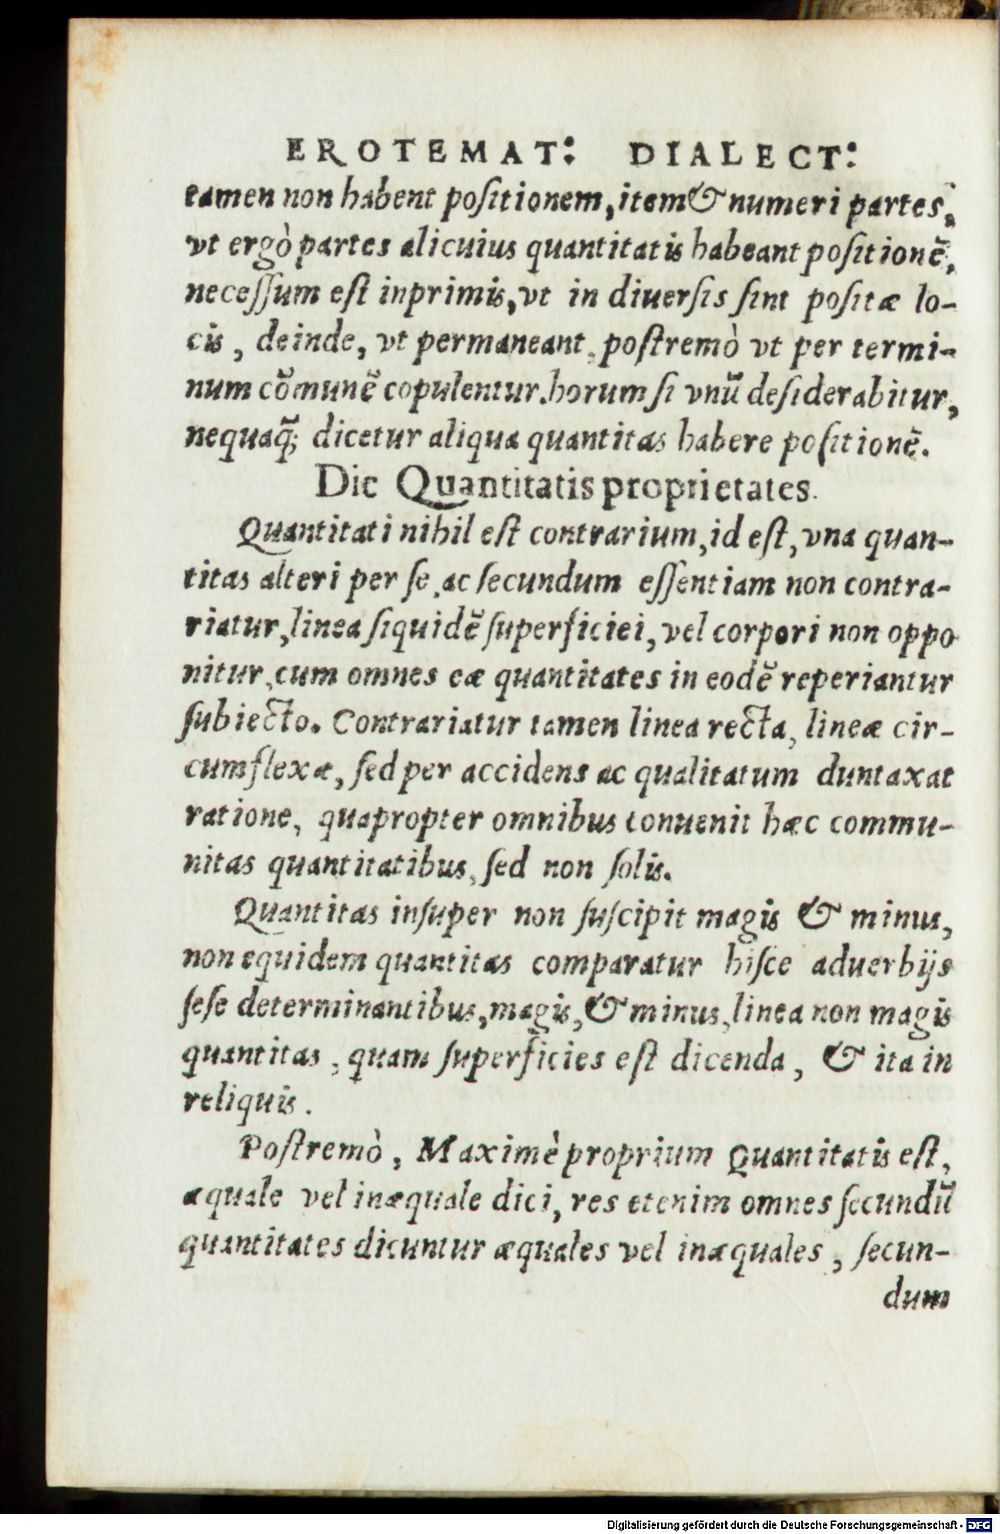 EROTEMAT: DIALECT:
tamen non habent poſitionem, item & numeri partes,
vt ergò partes alicuius quantitatis habeant poſitionē,
neceſſum eſt inprimis, vt in diuerſis ſint poſitæ lo-
cis, deinde, vt permaneant, poſtremò vt per termi-
num cōmunē copulentur. horum ſi vnū deſiderabitur,
nequaq̃; dicetur aliqua quantitas habere poſitionē.
Dic Quantitatis proprietates.
Quantitati nihil eſt contrarium, id eſt, vna quan-
titas alteri per ſe, ac ſecundum eſſentiam non contra-
riatur, linea ſiquidē ſuperficiei, vel corpori non oppo
nitur, cum omnes eæ quantitates in eodē reperiantur
ſubiecto. Contrariatur tamen linea recta, lineæ cir-
cumflexæ, ſed per accidens ac qualitatum duntaxat
ratione, quapropter omnibus conuenit hæc commu-
nitas quantitatibus, ſed non ſolis.
Quantitas inſuper non ſuſcipit magis & minus,
non equidem quantitas comparatur hiſce aduerbijs
ſeſe determinantibus, magis, & minus, linea non magis
quantitas, quam ſuperficies eſt dicenda, & ita in
reliquis.
Poſtremò, Maximè proprium Quantitatis eſt,
æquale vel inæquale dici, res etenim omnes ſecundū
quantitates dicuntur æquales vel inæquales, ſecun-
dum
Digitalisierung gefördert durch die Deutsche Forschungsgemeinschaft - DFG